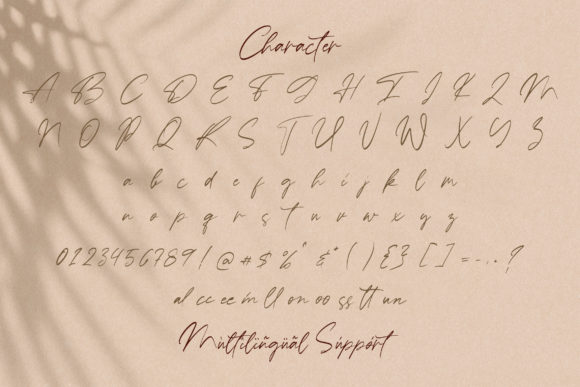 Character
A B C D E F G H I J K L M
N O P Q R S T U V W X Y Z
a b c d e f g h i j k l m
n o p q r s t u v w x y z
0123456789!@#$%^&*(){}[]=-..?
al cc ee m ll on oo ss tt un
Múltilingüäl Sùppört